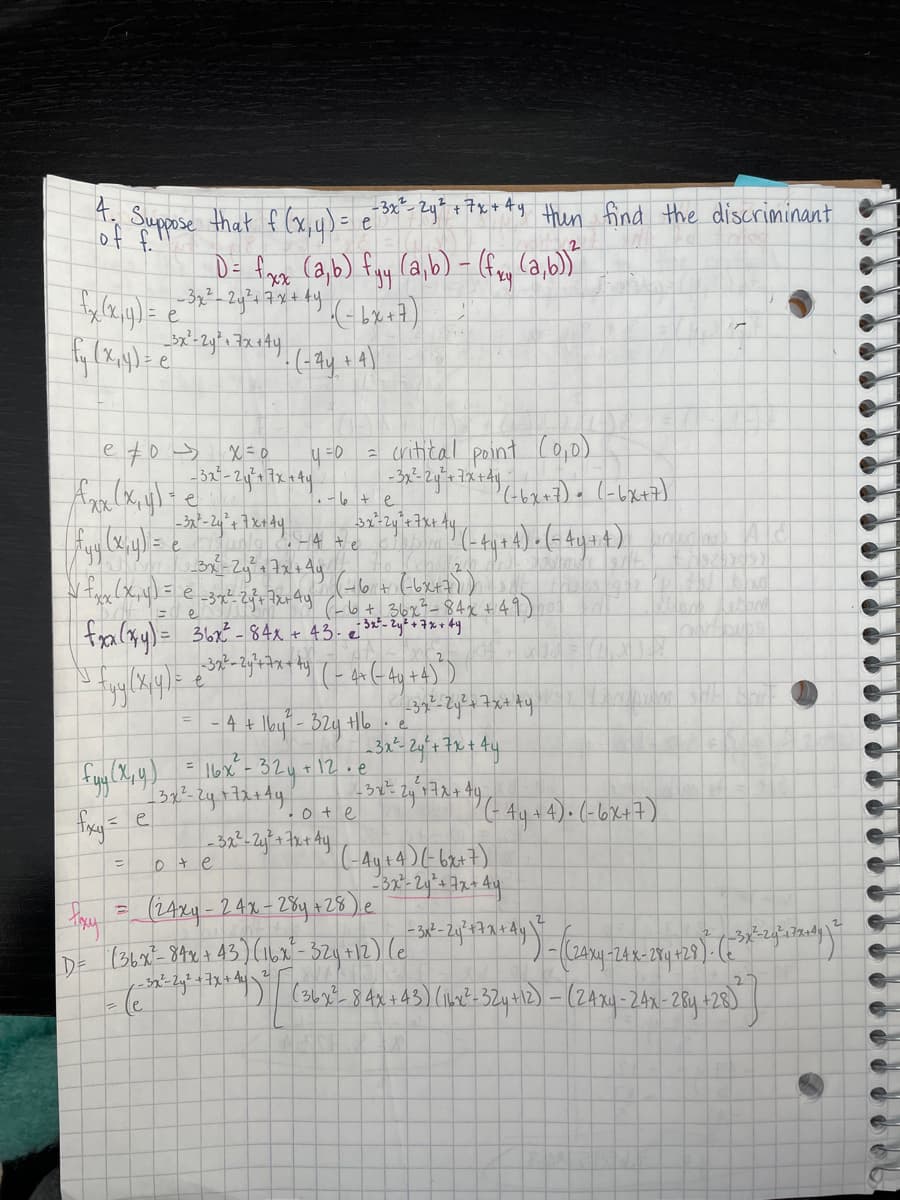 4. Suppose that f(x,y) = e^{-3x²-2y²+7x+4y} then find the discriminant
of f.
D = f_{xx}(a,b) f_{yy}(a,b) - (f_{xy}(a,b))²
f_x(x,y) = e^{-3x²-2y²+7x+4y} · (-6x+7)
f_y(x,y) = e^{-3x²-2y²+7x+4y} · (-4y+4)
e ≠ 0 → x=0 y=0 = critical point (0,0)
f_{xx}(x,y) = e^{-3x²-2y²+7x+4y} · -6 + e^{-3x²-2y²+7x+4y} (-6x+7) · (-6x+7)
f_{yy}(x,y) = e^{-3x²-2y²+7x+4y} · -4 + e^{-3x²-2y²+7x+4y} (-4y+4) · (-4y+4)
f_{xx}(x,y) = e^{-3x²-2y²+7x+4y} (-6 + (-6x+7)²)
= e^{-3x²-2y²+7x+4y} (-6 + 36x² - 84x + 49)
f_{xx}(x,y) = 36x² - 84x + 43 · e^{-3x²-2y²+7x+4y}
f_{yy}(x,y) = e^{-3x²-2y²+7x+4y} (-4+(-4y+4)²)
= -4 + 16y² - 32y + 16 · e^{-3x²-2y²+7x+4y}
f_{yy}(x,y) = 16x² - 32y + 12 · e^{-3x²-2y²+7x+4y}
f_{xy} = e^{-3x²-2y+7x+4y} · 0 + e^{-3x²-2y²+7x+4y} (-4y+4) · (-6x+7)
= 0 + e^{-3x²-2y²+7x+4y} (-4y+4)(-6x+7)
f_{xy} = (24xy - 24x - 28y + 28) e^{-3x²-2y²+7x+4y}
D = (36x² - 84x + 43)(16x² - 32y + 12)(e^{-3x²-2y²+7x+4y})² - ((24xy - 24x - 28y + 28)² · (e^{-3x²-2y²+7x+4y})²
= (e^{-3x²-2y²+7x+4y})² [(36x² - 84x + 43)(16x² - 32y + 12) - (24xy - 24x - 28y + 28)²]